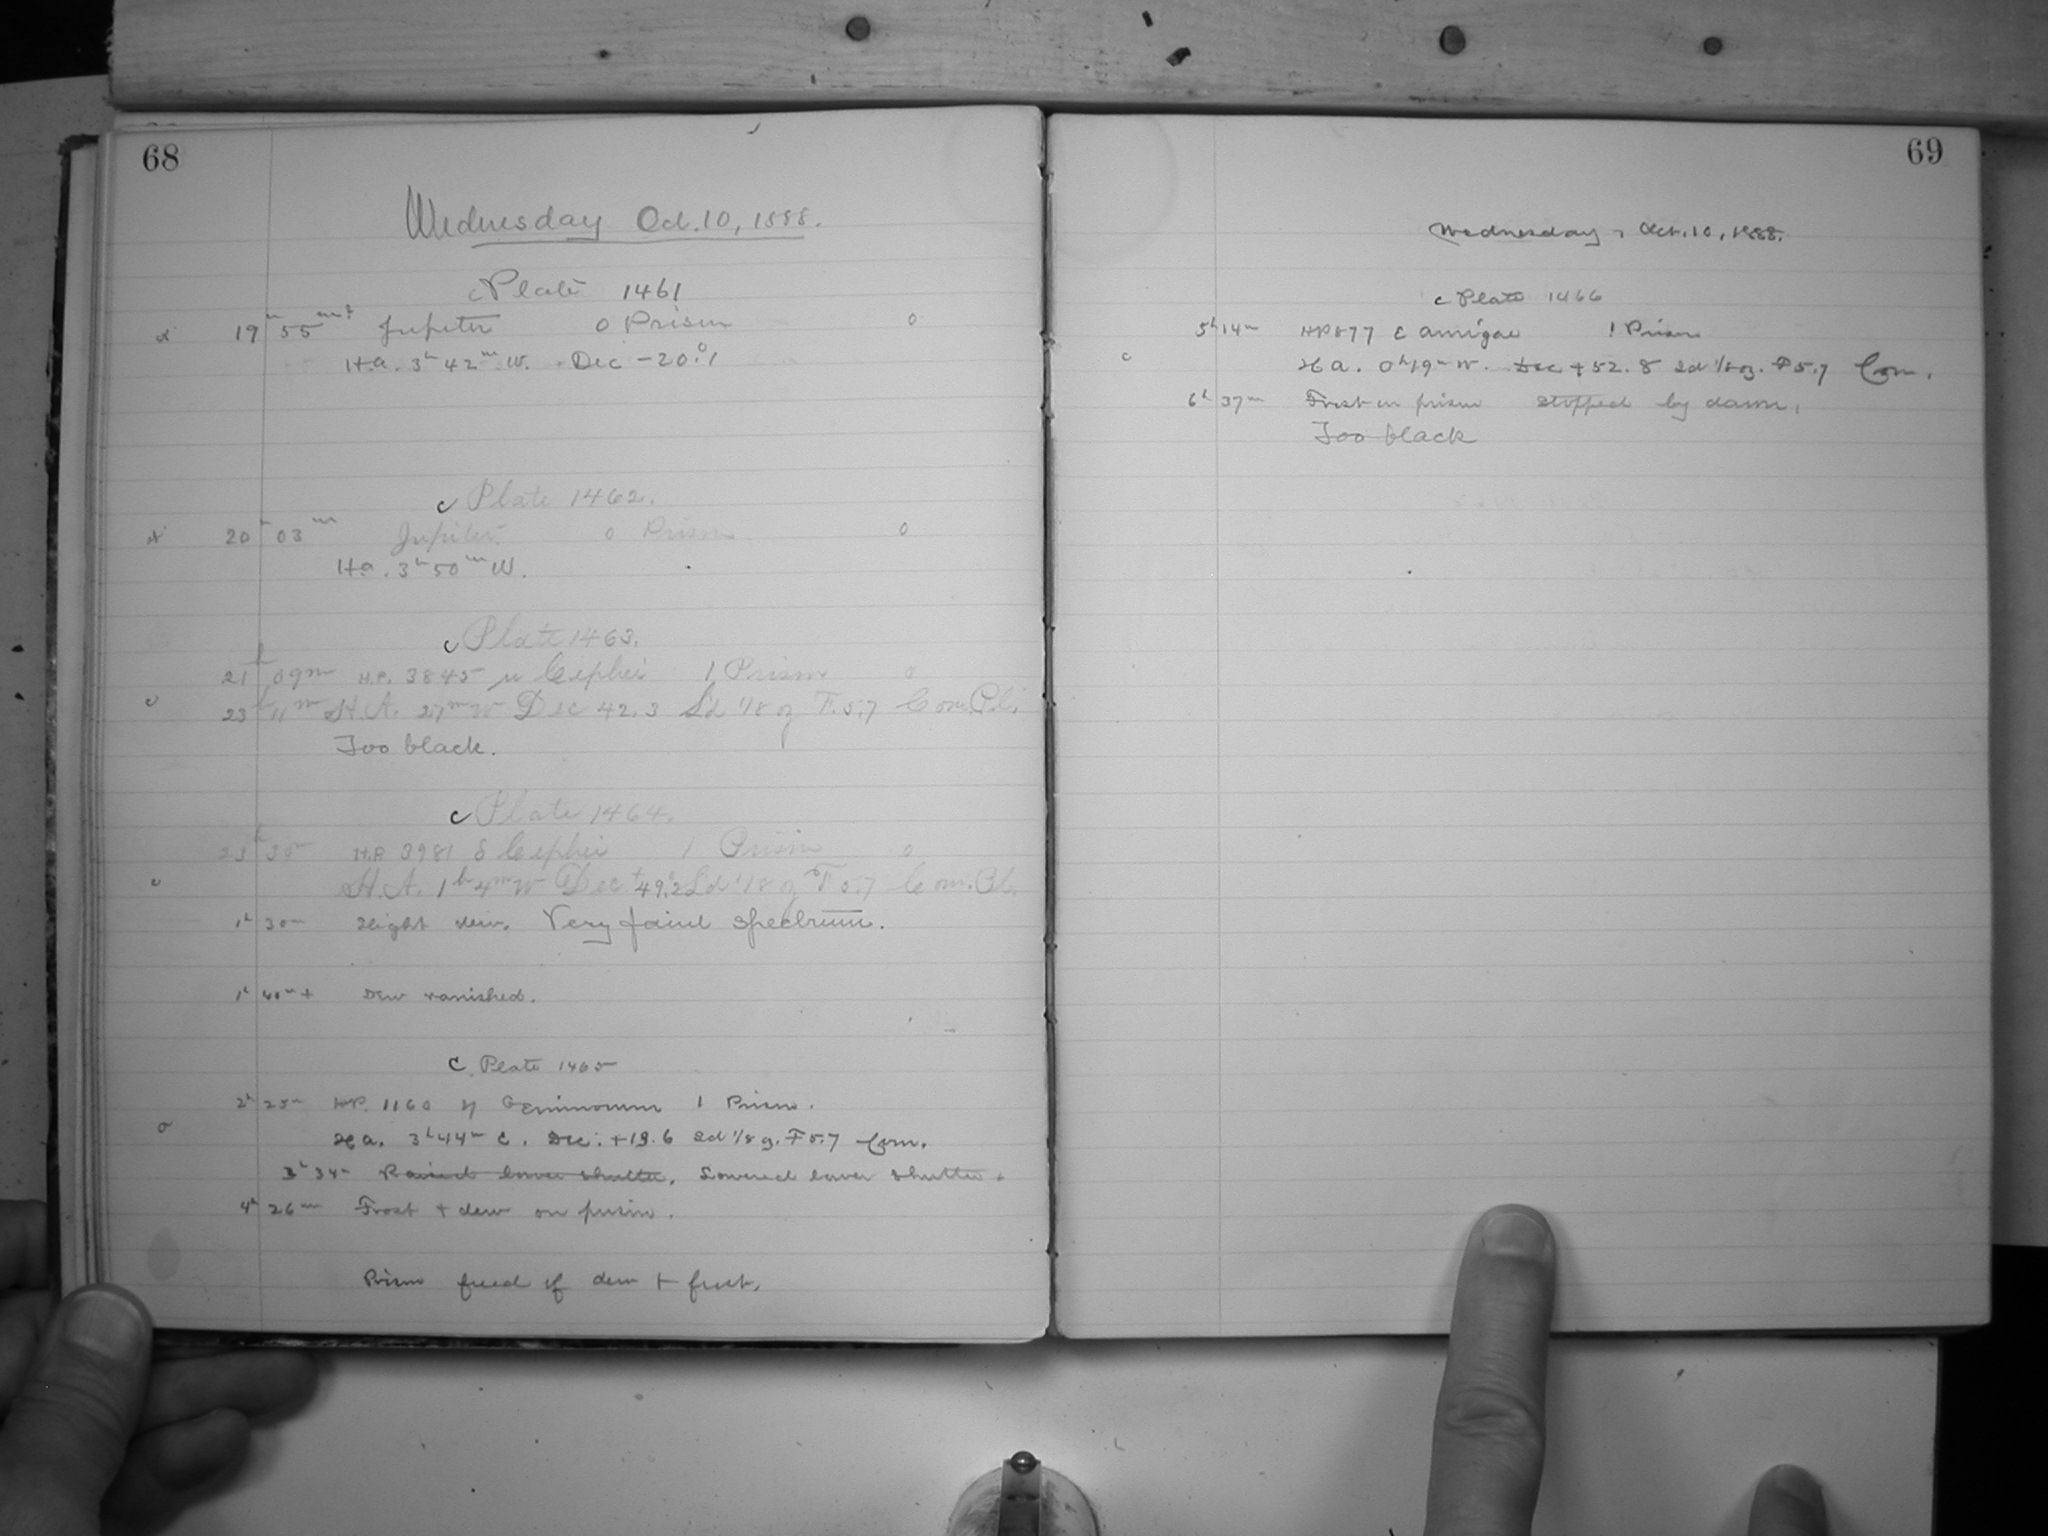 68
Wednesday Oct. 10, 1888.
c Plate 1461
19h 55m± Jupiter 0 Prism 0
H.a. 3h 42m W. Dec -20.°1
c Plate 1462.
20h 03m Jupiter 0 Prism 0
H.a. 3h 50m W.
c Plate 1463.
21h 09m H.P. 3845 μ Cephei 1 Prism 0
c 23h 11m H.A. 27m W Dec 42.3 Sd 1/8 oz F.5.7 Com. Pl.
Too black.
c Plate 1464.
23h 30m H.P. 3981 δ Cephei 1 Prism 0
c H.A. 1h 4m W Dec +49.2 Sd 1/8 oz F 5.7 Com. Pl.
1h 30m Slight dew. Very faint spectrum.
1h 40m+ Dew vanished.
c Plate 1465
2h 25m H.P. 1160 η Geminorum 1 Prism.
H a. 3h 44m E. Dec. +19.6 Sd 1/8 g. F 5.7 Com.
3h 34m Raised lower shutter. Lowered lower shutter.
4h 26m Frost + dew on prism.
Prism freed of dew + frost.
69
Wednesday, Oct. 10, 1888.
c Plate 1466
5h 14m HP 877 ε Aurigae 1 Prism
c H a. 0h 19m W. Dec +52.8 Sd 1/8 oz. F 5.7 Com.
6h 37m Frost on prism Stopped by dawn.
Too black